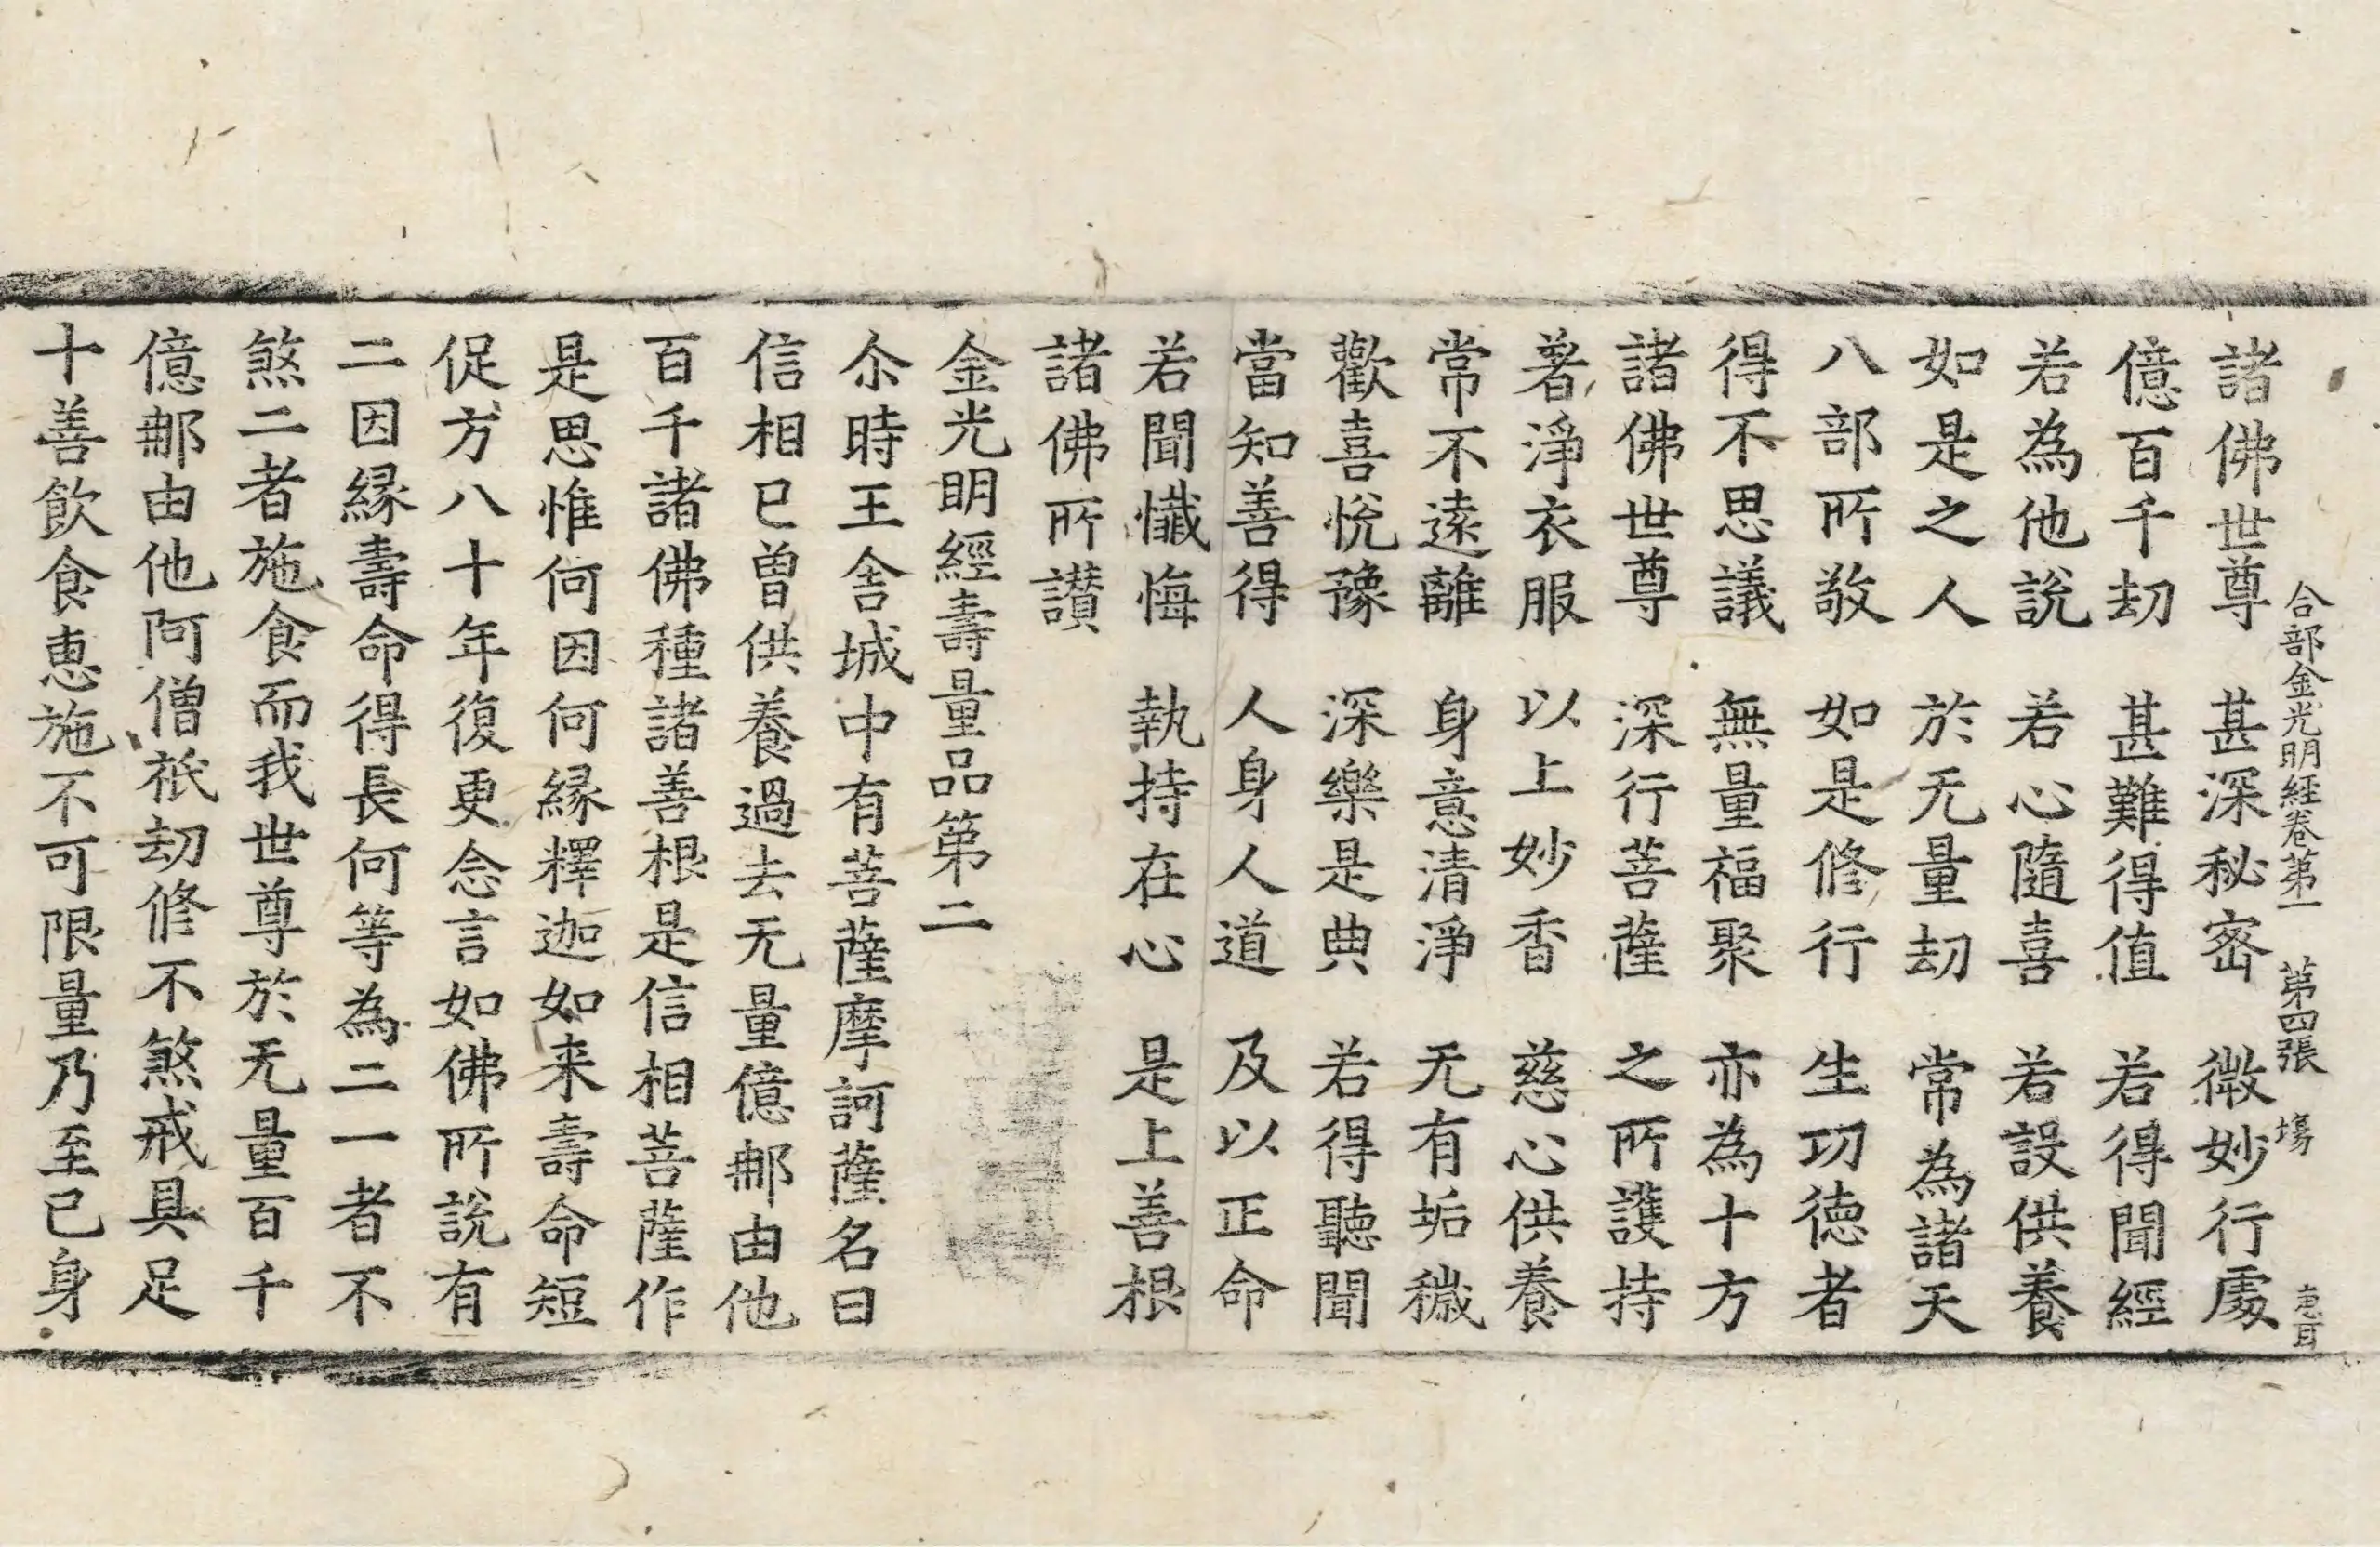 合部金光明經卷第一 第四張 塲 恵耳
諸佛世尊 甚深秘密 微妙行處
億百千劫 甚難得值 若得聞經
若為他說 若心隨喜 若設供養
如是之人 於无量劫 常為諸天
八部所敬 如是修行 生功德者
得不思議 無量福聚 亦為十方
諸佛世尊 深行菩薩 之所護持
著淨衣服 以上妙香 慈心供養
常不遠離 身意清淨 无有垢穢
歡喜悅豫 深樂是典 若得聽聞
當知善得 人身人道 及以正命
若聞懺悔 執持在心 是上善根
諸佛所讃
金光明經壽量品第二
尒時王舍城中有菩薩摩訶薩名曰
信相已曾供養過去无量億那由他
百千諸佛種諸善根是信相菩薩作
是思惟何因何縁釋迦如来壽命短
促方八十年復更念言如佛所說有
二因縁壽命得長何等為二一者不
煞二者施食而我世尊於无量百千
億那由他阿僧祇劫修不煞戒具足
十善飲食恵施不可限量乃至已身